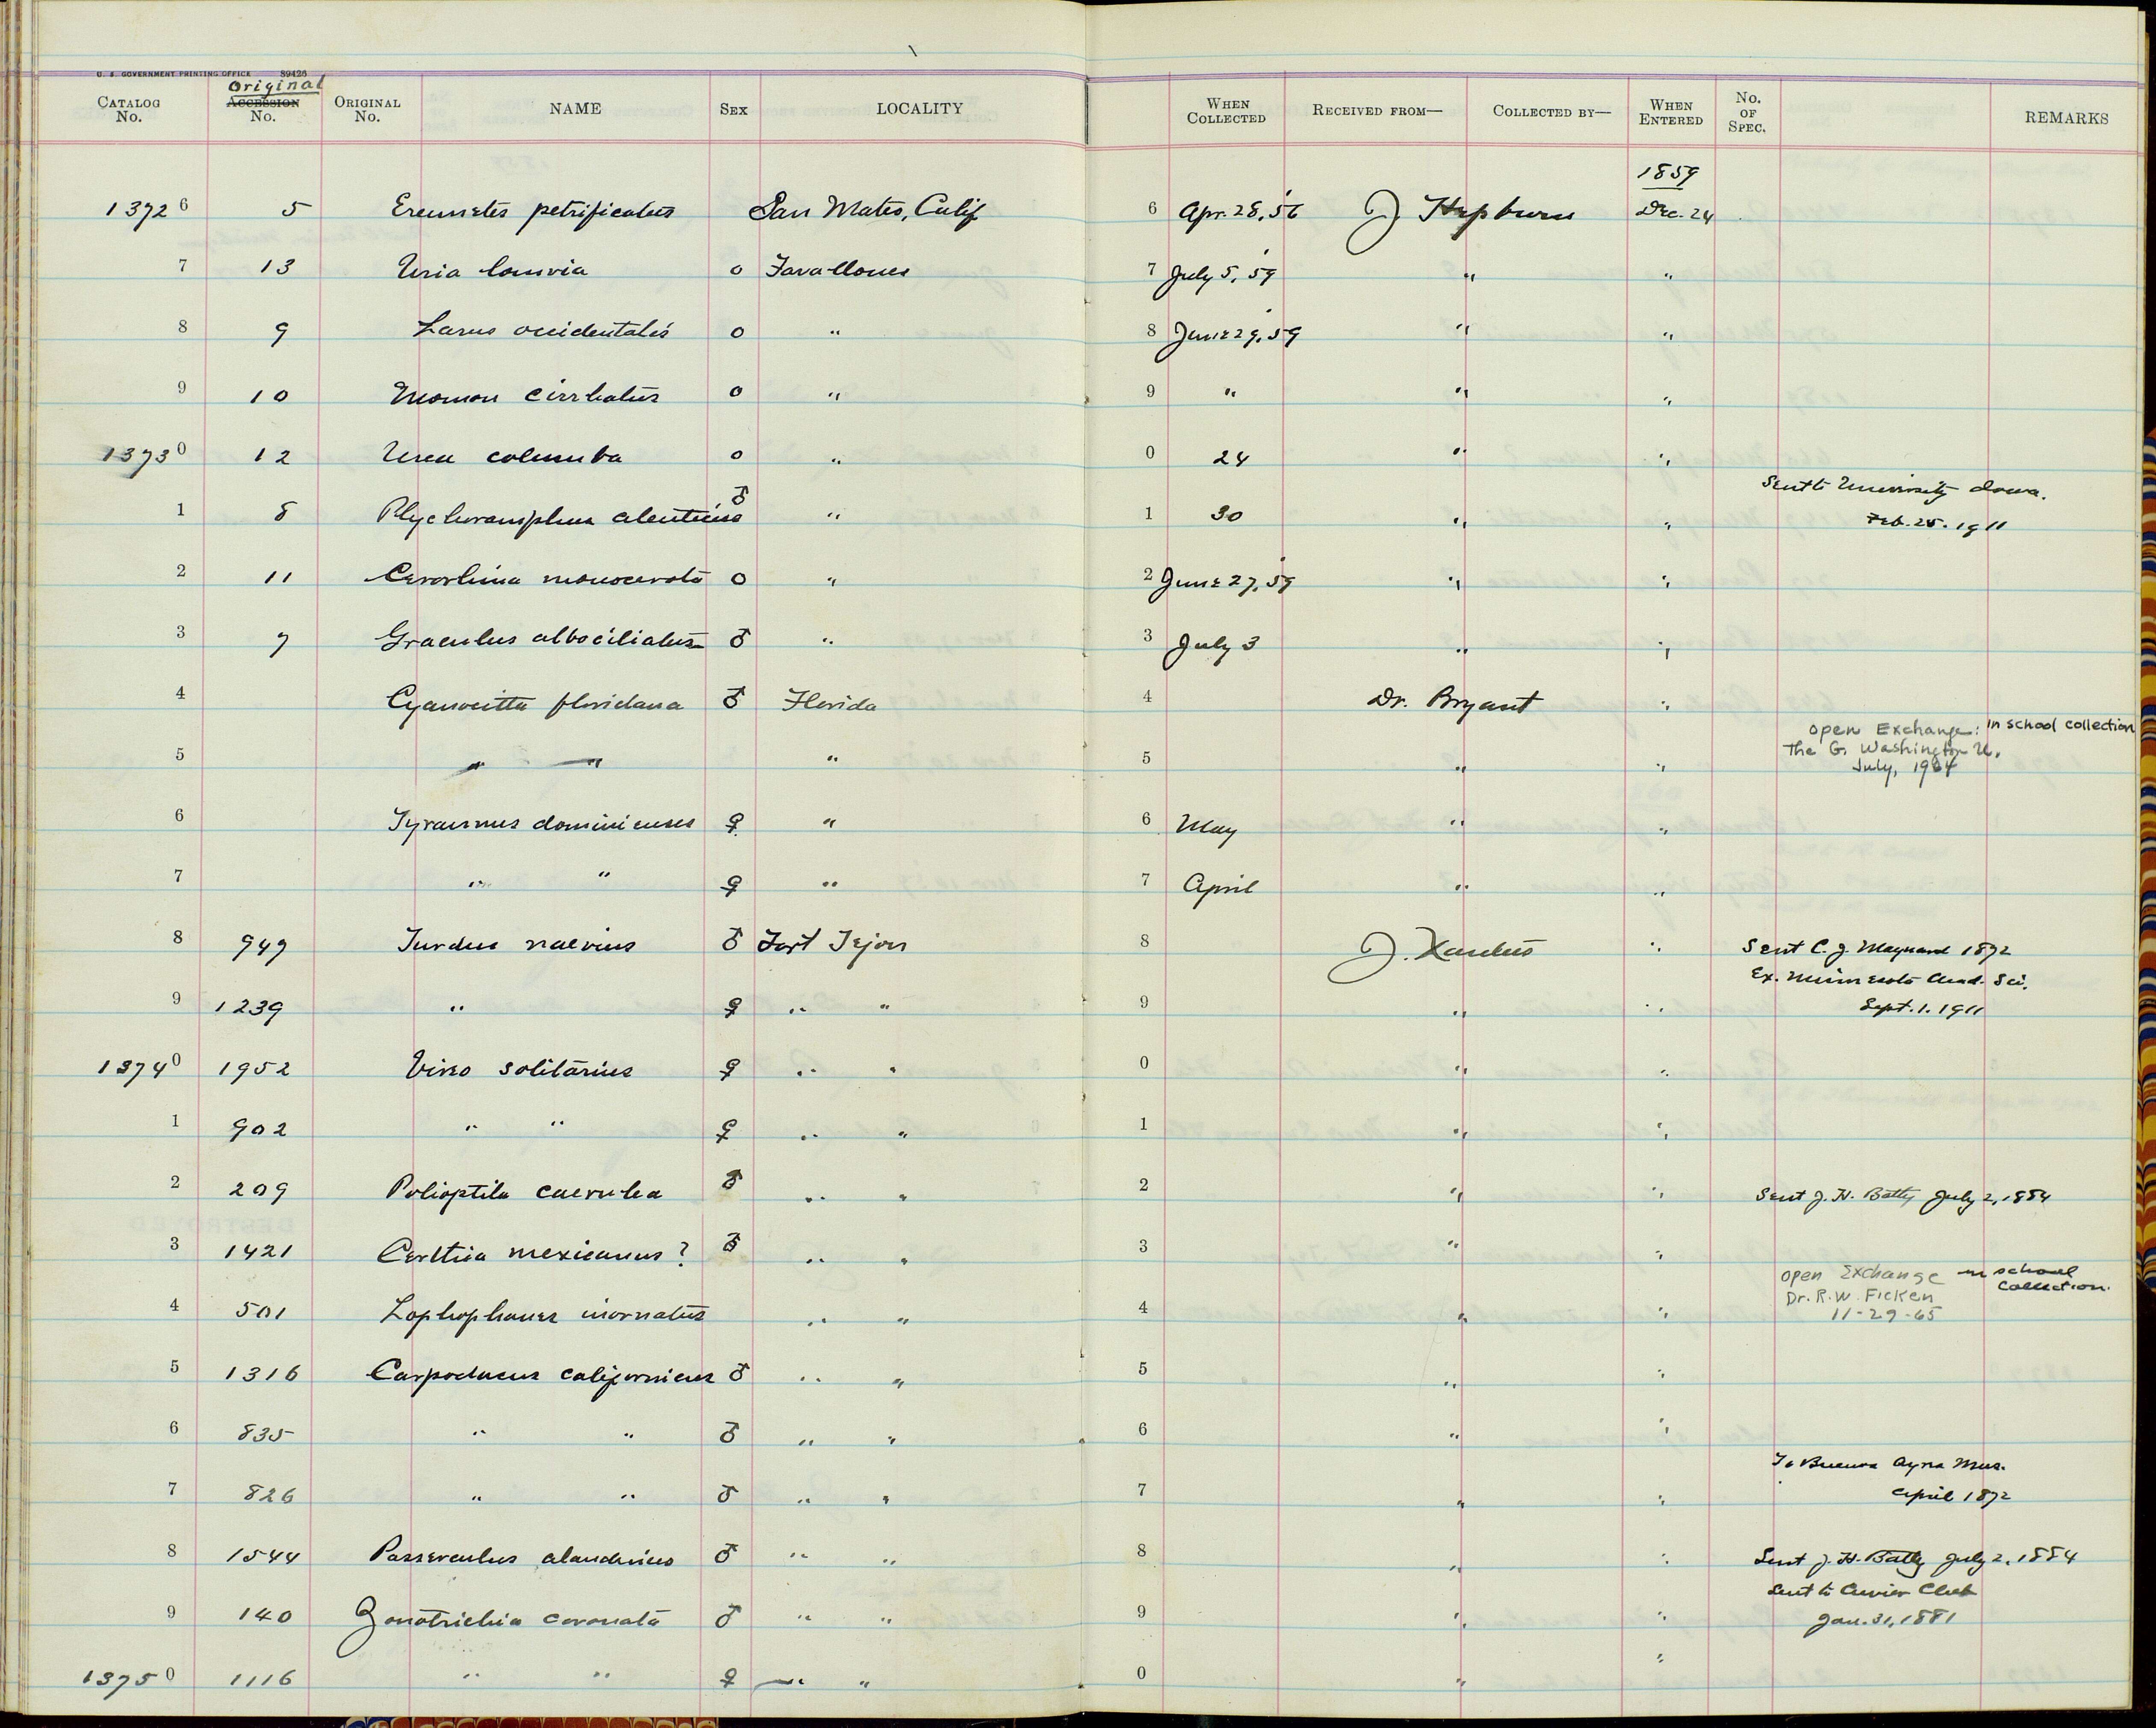 U. S. GOVERNMENT PRINTING OFFICE 89426
CATALOG No. Original ACCESSION No. ORIGINAL No. NAME SEX LOCALITY WHEN COLLECTED RECEIVED FROM— COLLECTED BY— WHEN ENTERED No. OF SPEC. REMARKS
1859
13726 5 Ereunetes petrificatus San Mateo, Calif 6 Apr. 28, '56 J Hepburn Dec. 24
7 13 Uria lomvia o Farallones 7 July 5, '59 " "
8 9 Larus occidentalis o " 8 June 29, '59 " "
9 10 Momon cirrhatus o " 9 " " "
13730 12 Uria columba o " 0 24 " "
1 8 Ptychoramphus aleuticus ♂ " 1 30 " " Sent to University Iowa.
Feb. 25. 1911
2 11 Cerorhina monocerata o " 2 June 27, '59 " "
3 7 Graculus albociliatus ♂ " 3 July 3 " "
4 Cyanocitta floridana ♂ Florida 4 Dr. Bryant "
5 " " " 5 " " Open Exchange: in school collection
The G. Washington U.
July, 1964
6 Tyrannus dominicenses ♀ " 6 May " "
7 " " ♀ " 7 April " "
8 949 Turdus naevius ♂ Fort Tejon 8 J. Xantus " Sent C. J. Maynard 1872
9 1239 " ♀ " " 9 " " Ex. Minnesota Acad. Sci.
Sept. 1. 1911
13740 1952 Vireo solitarius ♀ " " 0 " "
1 902 " " ♀ " " 1 " "
2 209 Polioptila caerulea ♂ " " 2 " " Sent J. H. Batty July 2, 1884
3 1421 Certhia mexicanus? ♂ " " 3 " "
4 501 Lophophanes inornatus " " 4 " " Open Exchange in school collection.
Dr. R. W. Ficken
11-29-65
5 1316 Carpodacus californicus ♂ " " 5 " "
6 835 " " ♂ " " 6 " "
7 826 " " ♂ " " 7 " " To Buenos Ayres Mus.
April 1872
8 1544 Passerculus alaudinus ♂ " " 8 " " Sent J. H. Batty July 2, 1884
9 140 Zonotrichia coronata ♂ " " 9 " " Sent to Cuvier Club
Jan. 31, 1881
13750 1116 " " ♀ " " 0 " "